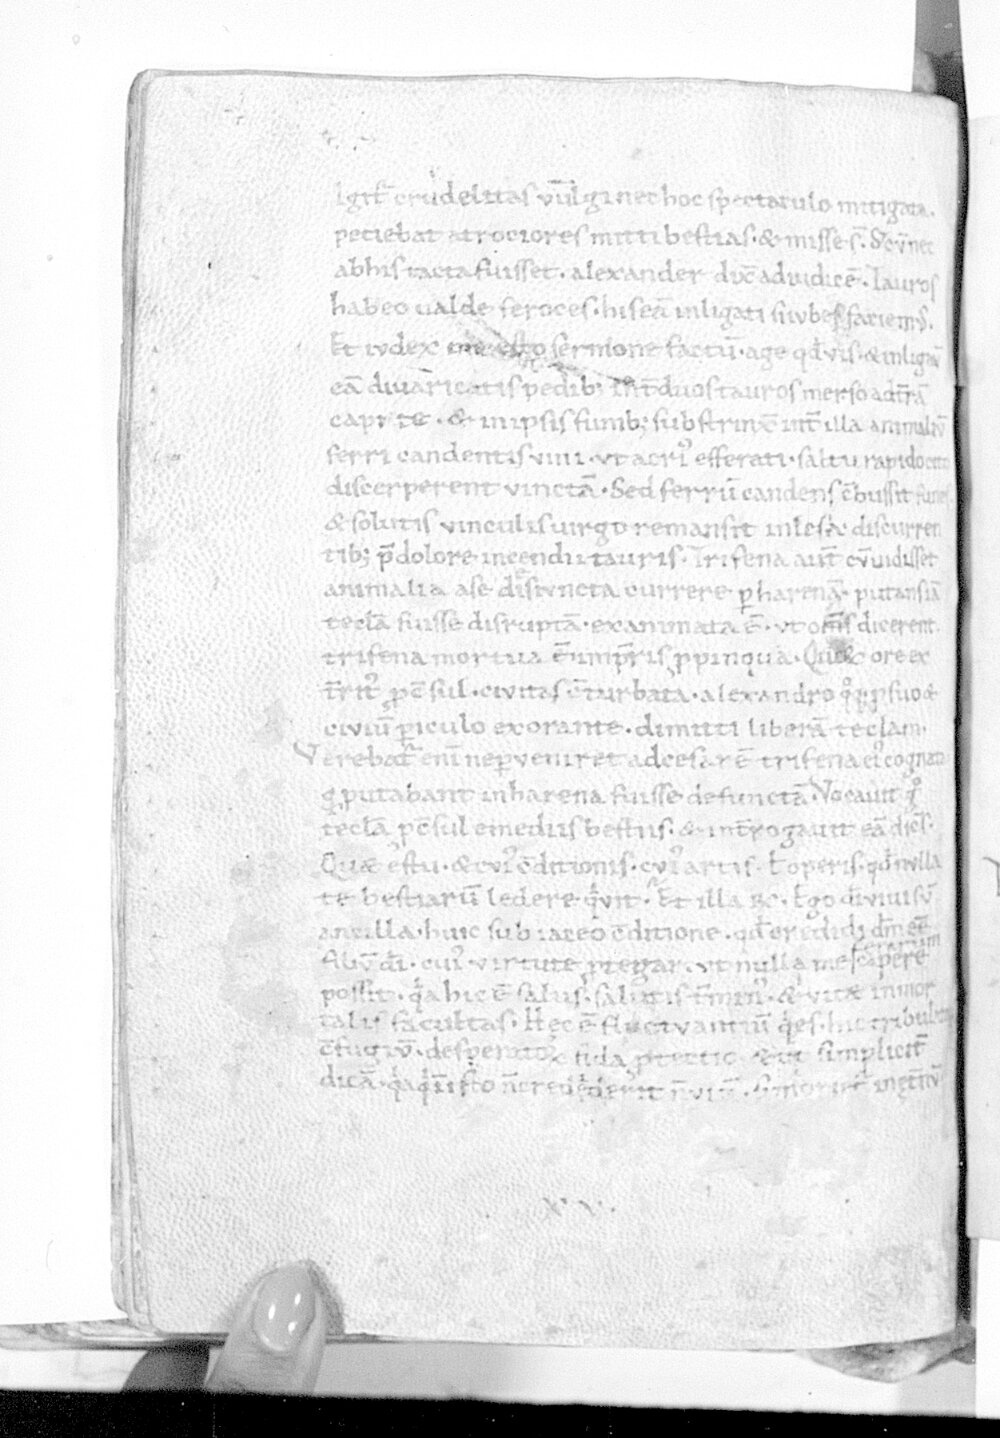 Igit̄ crudelitas vulgi nec hoc spectaculo mitigata.
petiebat atrociores mitti bestias. & misse s̄. & cv̄ nec
ab his tacta fuisset. alexander dix̄ ad iudicē. Tauros
habeo ualde feroces. his eā inligati si iubes faciem᷒.
Et iudex sermone factū. age qđ vis. & inligav̄
eā divaricatis pedib; int̄ duos tauros merso ad t̄rā
capite. & in ipsis funib; substrinx̄ int̄ illa animaliū
ferri candentis vt acri᷒ efferati. saltu rapido cito
discerperent vinctā. Sed ferrū candens c̄bussit funes
& solutis vinculis uirgo remansit inlesa. discurren
tib; p̄ dolore incendii tauris. Trifena aut̄ cv̄ uidisset
animalia a se disiuncta currere p harenā. putans iā
teclā fuisse disruptā. exanimata ē. vt om̄s dicerent.
trifena mortua ē imp̄ris ppinqua. Quo ore ex
t̄rit᷒ pc̄sul. civitas c̄turbata. alexandro qq; p suo &
civiū piculo exorante. dimitti liberā teclam.
Verebat̄ eni ne perveniret ad cesarē trifena ei᷒ cognata
q putabant in harena fuisse defunctā. Vocavit
teclā pc̄sul e mediis bestiis. & int̄rogauit eā dic̄s.
Quæ es tu. & cui᷒ c̄ditionis. cui᷒ artis. ł operis. qđ nulla
te bestiarū ledere qvit. Et illa R̄. Ego dī vivi sv̄
ancilla. huic subiaceo c̄ditione. qđ credidi dm̄ eē
filiv̄ dī. cui᷒ virtute ptegar. vt nulla me ferarum capere
possit. qa hic ē salus. salutis t̄min᷒. & vitæ inmor
talis facultas. Hec ē fluctuantiū qes. hic tribulat
c̄fugiv̄. desperatoꝝ fida ptectio. & ut simplicit̄
dicā. qa q in isto n̄ credid̄it n̄ viv̄. s; morit̄ in et̄nv̄